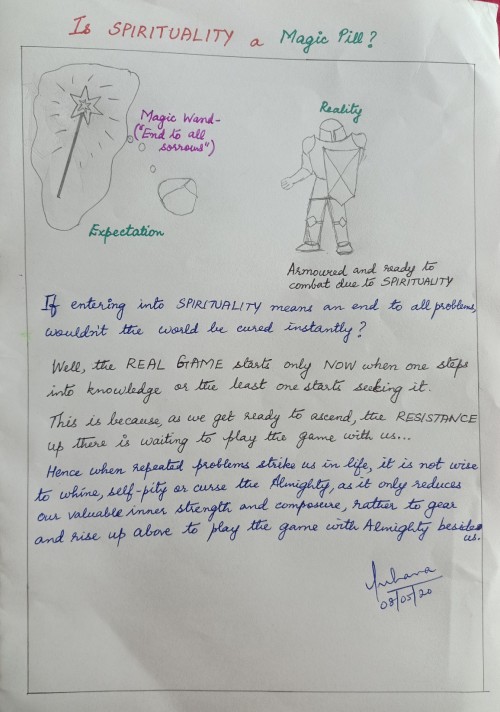 Is SPIRITUALITY a Magic Pill?
Magic Wand-
("End to all
sorrows")
Expectation
Reality
Armoured and ready to
combat due to SPIRITUALITY
If entering into SPIRITUALITY means an end to all problems,
wouldn't the world be cured instantly?
Well, the REAL GAME starts only NOW when one steps
into knowledge or the least one starts seeking it.
This is because, as we get ready to ascend, the RESISTANCE
up there is waiting to play the game with us...
Hence when repeated problems strike us in life, it is not wise
to whine, self-pity or curse the Almighty, as it only reduces
our valuable inner strength and composure, rather to gear
and rise up above to play the game with Almighty beside
us.
08/05/20